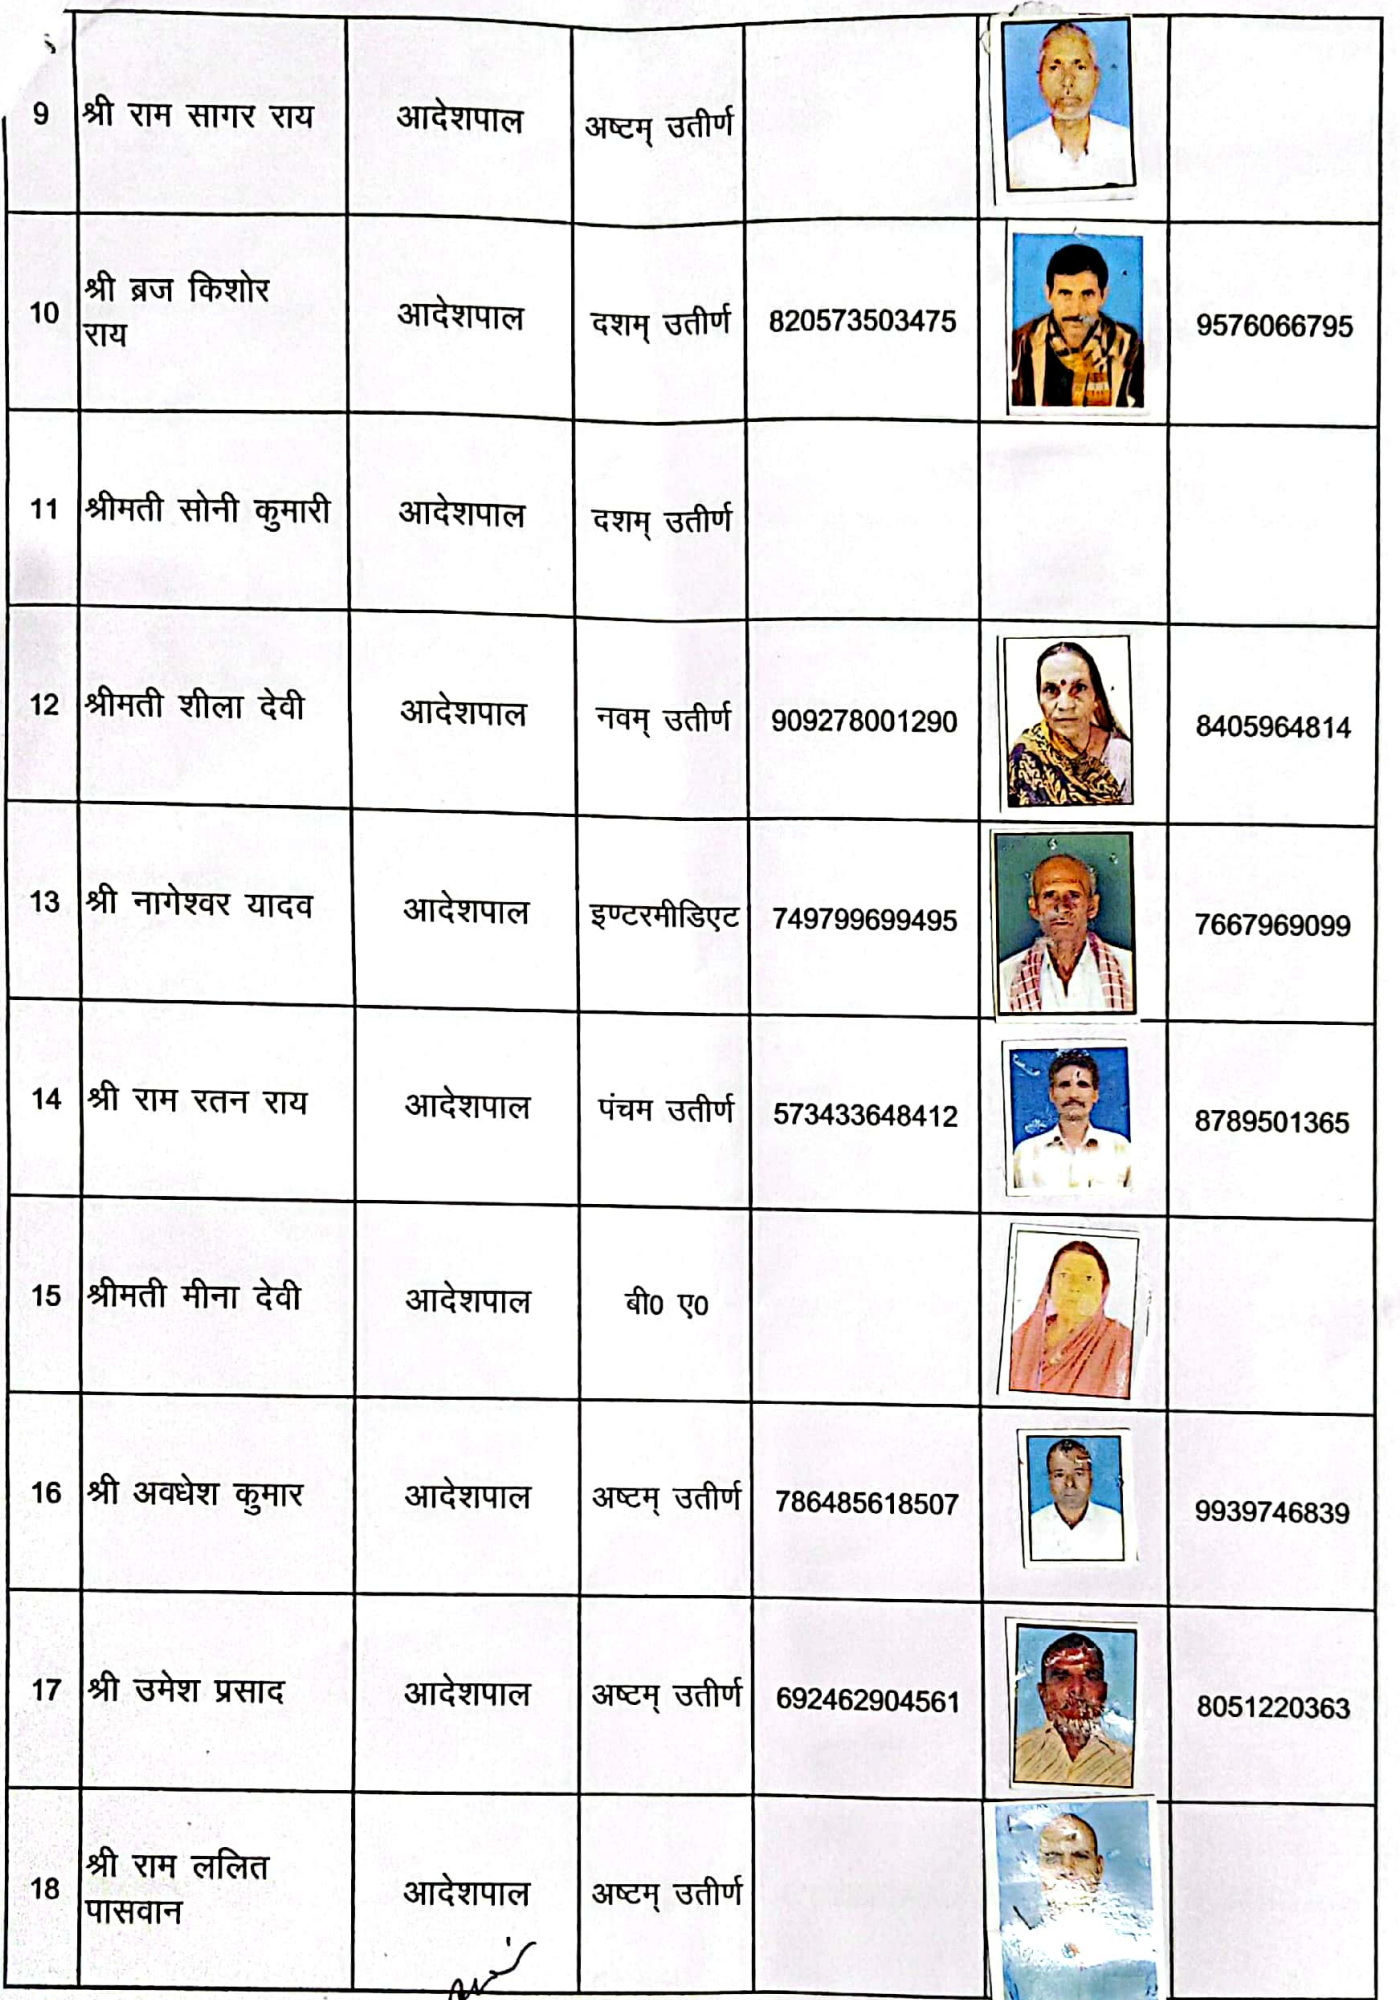 9 श्री राम सागर राय आदेशपाल अष्टम् उतीर्ण
10 श्री ब्रज किशोर राय आदेशपाल दशम् उतीर्ण 820573503475 9576066795
11 श्रीमती सोनी कुमारी आदेशपाल दशम् उतीर्ण
12 श्रीमती शीला देवी आदेशपाल नवम् उतीर्ण 909278001290 8405964814
13 श्री नागेश्वर यादव आदेशपाल इण्टरमीडिएट 749799699495 7667969099
14 श्री राम रतन राय आदेशपाल पंचम उतीर्ण 573433648412 8789501365
15 श्रीमती मीना देवी आदेशपाल बी0 ए0
16 श्री अवधेश कुमार आदेशपाल अष्टम् उतीर्ण 786485618507 9939746839
17 श्री उमेश प्रसाद आदेशपाल अष्टम् उतीर्ण 692462904561 8051220363
18 श्री राम ललित पासवान आदेशपाल अष्टम् उतीर्ण